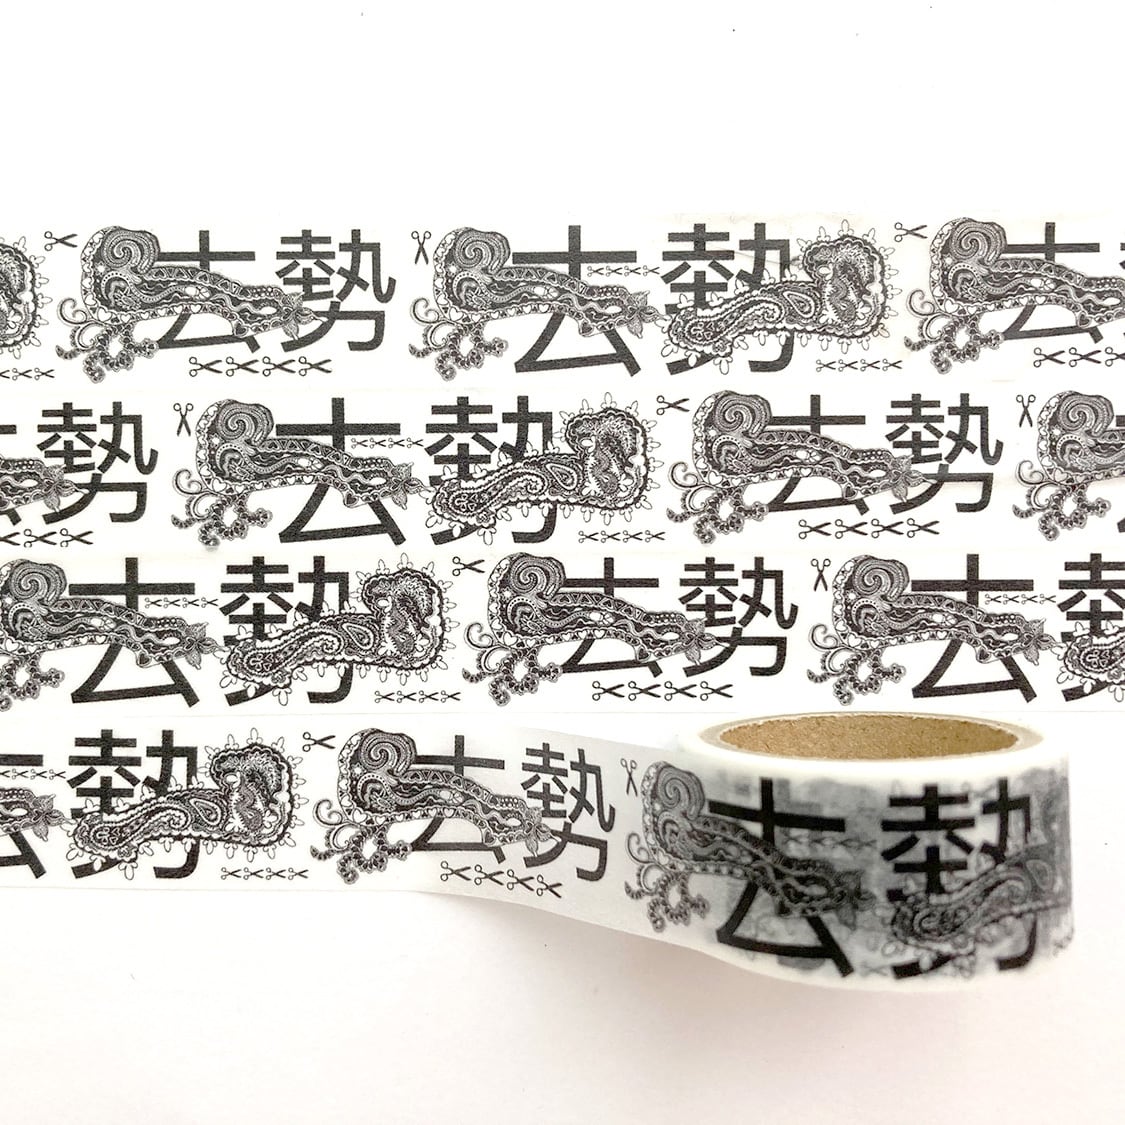 去勢 去勢 去
勢 去勢 去勢
去勢 去勢 去勢
去勢 去勢 去勢